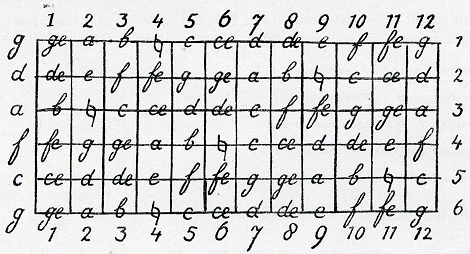 1 2 3 4 5 6 7 8 9 10 11 12
g ge a b ♮ c ce d de e f fe g 1
d de e f fe g ge a b ♮ c ce d 2
a b ♮ c ce d de e f fe g ge a 3
f fe g ge a b ♮ c ce d de e f 4
c ce d de e f fe g ge a b ♮ c 5
g ge a b ♮ c ce d de e f fe g 6
1 2 3 4 5 6 7 8 9 10 11 12